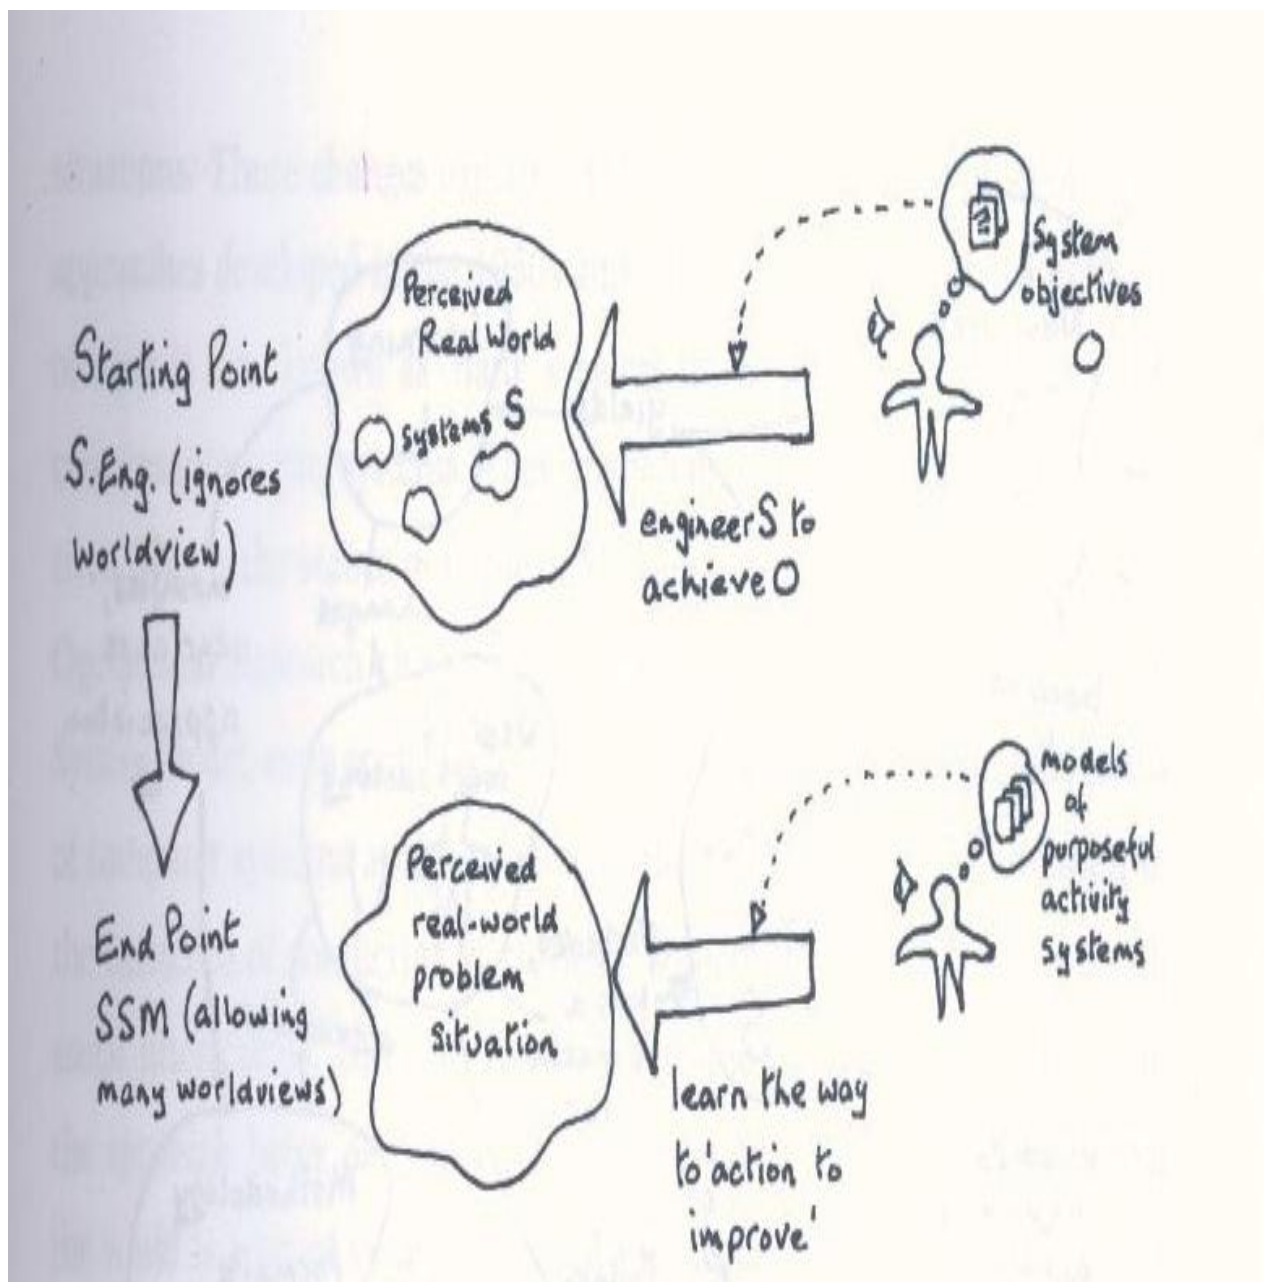 Starting Point
S.Eng. (ignores
worldview)
Perceived
Real World
systems S
engineer S to
achieve O
System
objectives
O
End Point
SSM (allowing
many worldviews)
Perceived
real-world
problem
situation
learn the way
to 'action to
improve'
models
of
purposeful
activity
systems